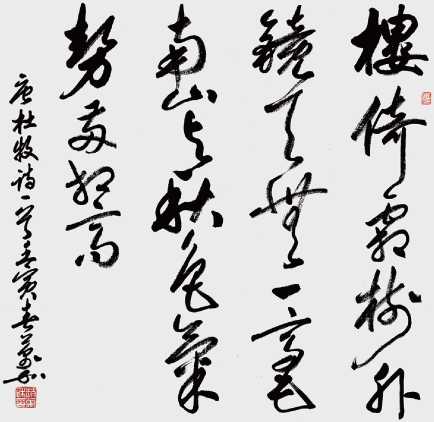 樓倚霜樹外
鏡天無一毫
南山与秋色氣
勢兩相高
唐杜牧詩一首壬寅春